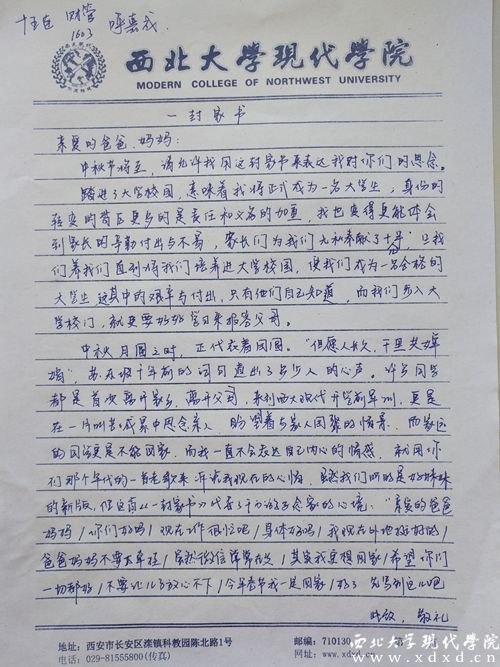 十五连 财管
1603
呼嘉戎
西北大学现代学院
MODERN COLLEGE OF NORTHWEST UNIVERSITY
一封家书
亲爱的爸爸、妈妈:
中秋节将至,请允许我用这封家书来表达我对你们的思念。
踏进了大学校园,意味着我将正式成为一名大学生,身份的
转变的背后更多的是责任和义务的加重,我也变得更能体会
到家长的辛勤付出与不易,家长们为我们无私奉献了十年,
们养我们直到将我们培养进大学校园,使我们成为一名合格的
大学生 这其中的艰辛与付出,只有他们自己知道,而我们步入大
学校门,就更要好好学习来报答父母。
中秋月圆之时,正代表着团圆。“但愿人长久,千里共婵
娟”,苏东坡千年前的词句道出了多少人的心声。许多同学
都是首次离开家乡,离开父母,来到西大现代开学前军训,更是
在一片中思念亲人,盼望着与家人团聚的情景,而家远
的同学更是不能回家,而我一直不会表达自己内心的情感,就用你
们那个年代的一首老歌来诉说我现在的心情,虽然我们听的是
的新版,但这首《一封家书》代表了千万游子念家的心境:“亲爱的爸爸
妈妈/你们好吗/现在工作很忙吧/身体好吗/我现在外地挺好的/
爸爸妈妈不要太牵挂/虽然微信常常在发/其实我更想回家/希望你们
一切都好/不要让儿子放心不下/今年春节我一定回家/好了 先写到这儿吧
此致,敬礼
地址:西安市长安区滦镇科教园陈北路1号
电话:029-81555800(传真)
邮编:710130
西北大学现代学院
www.xdxd.cn